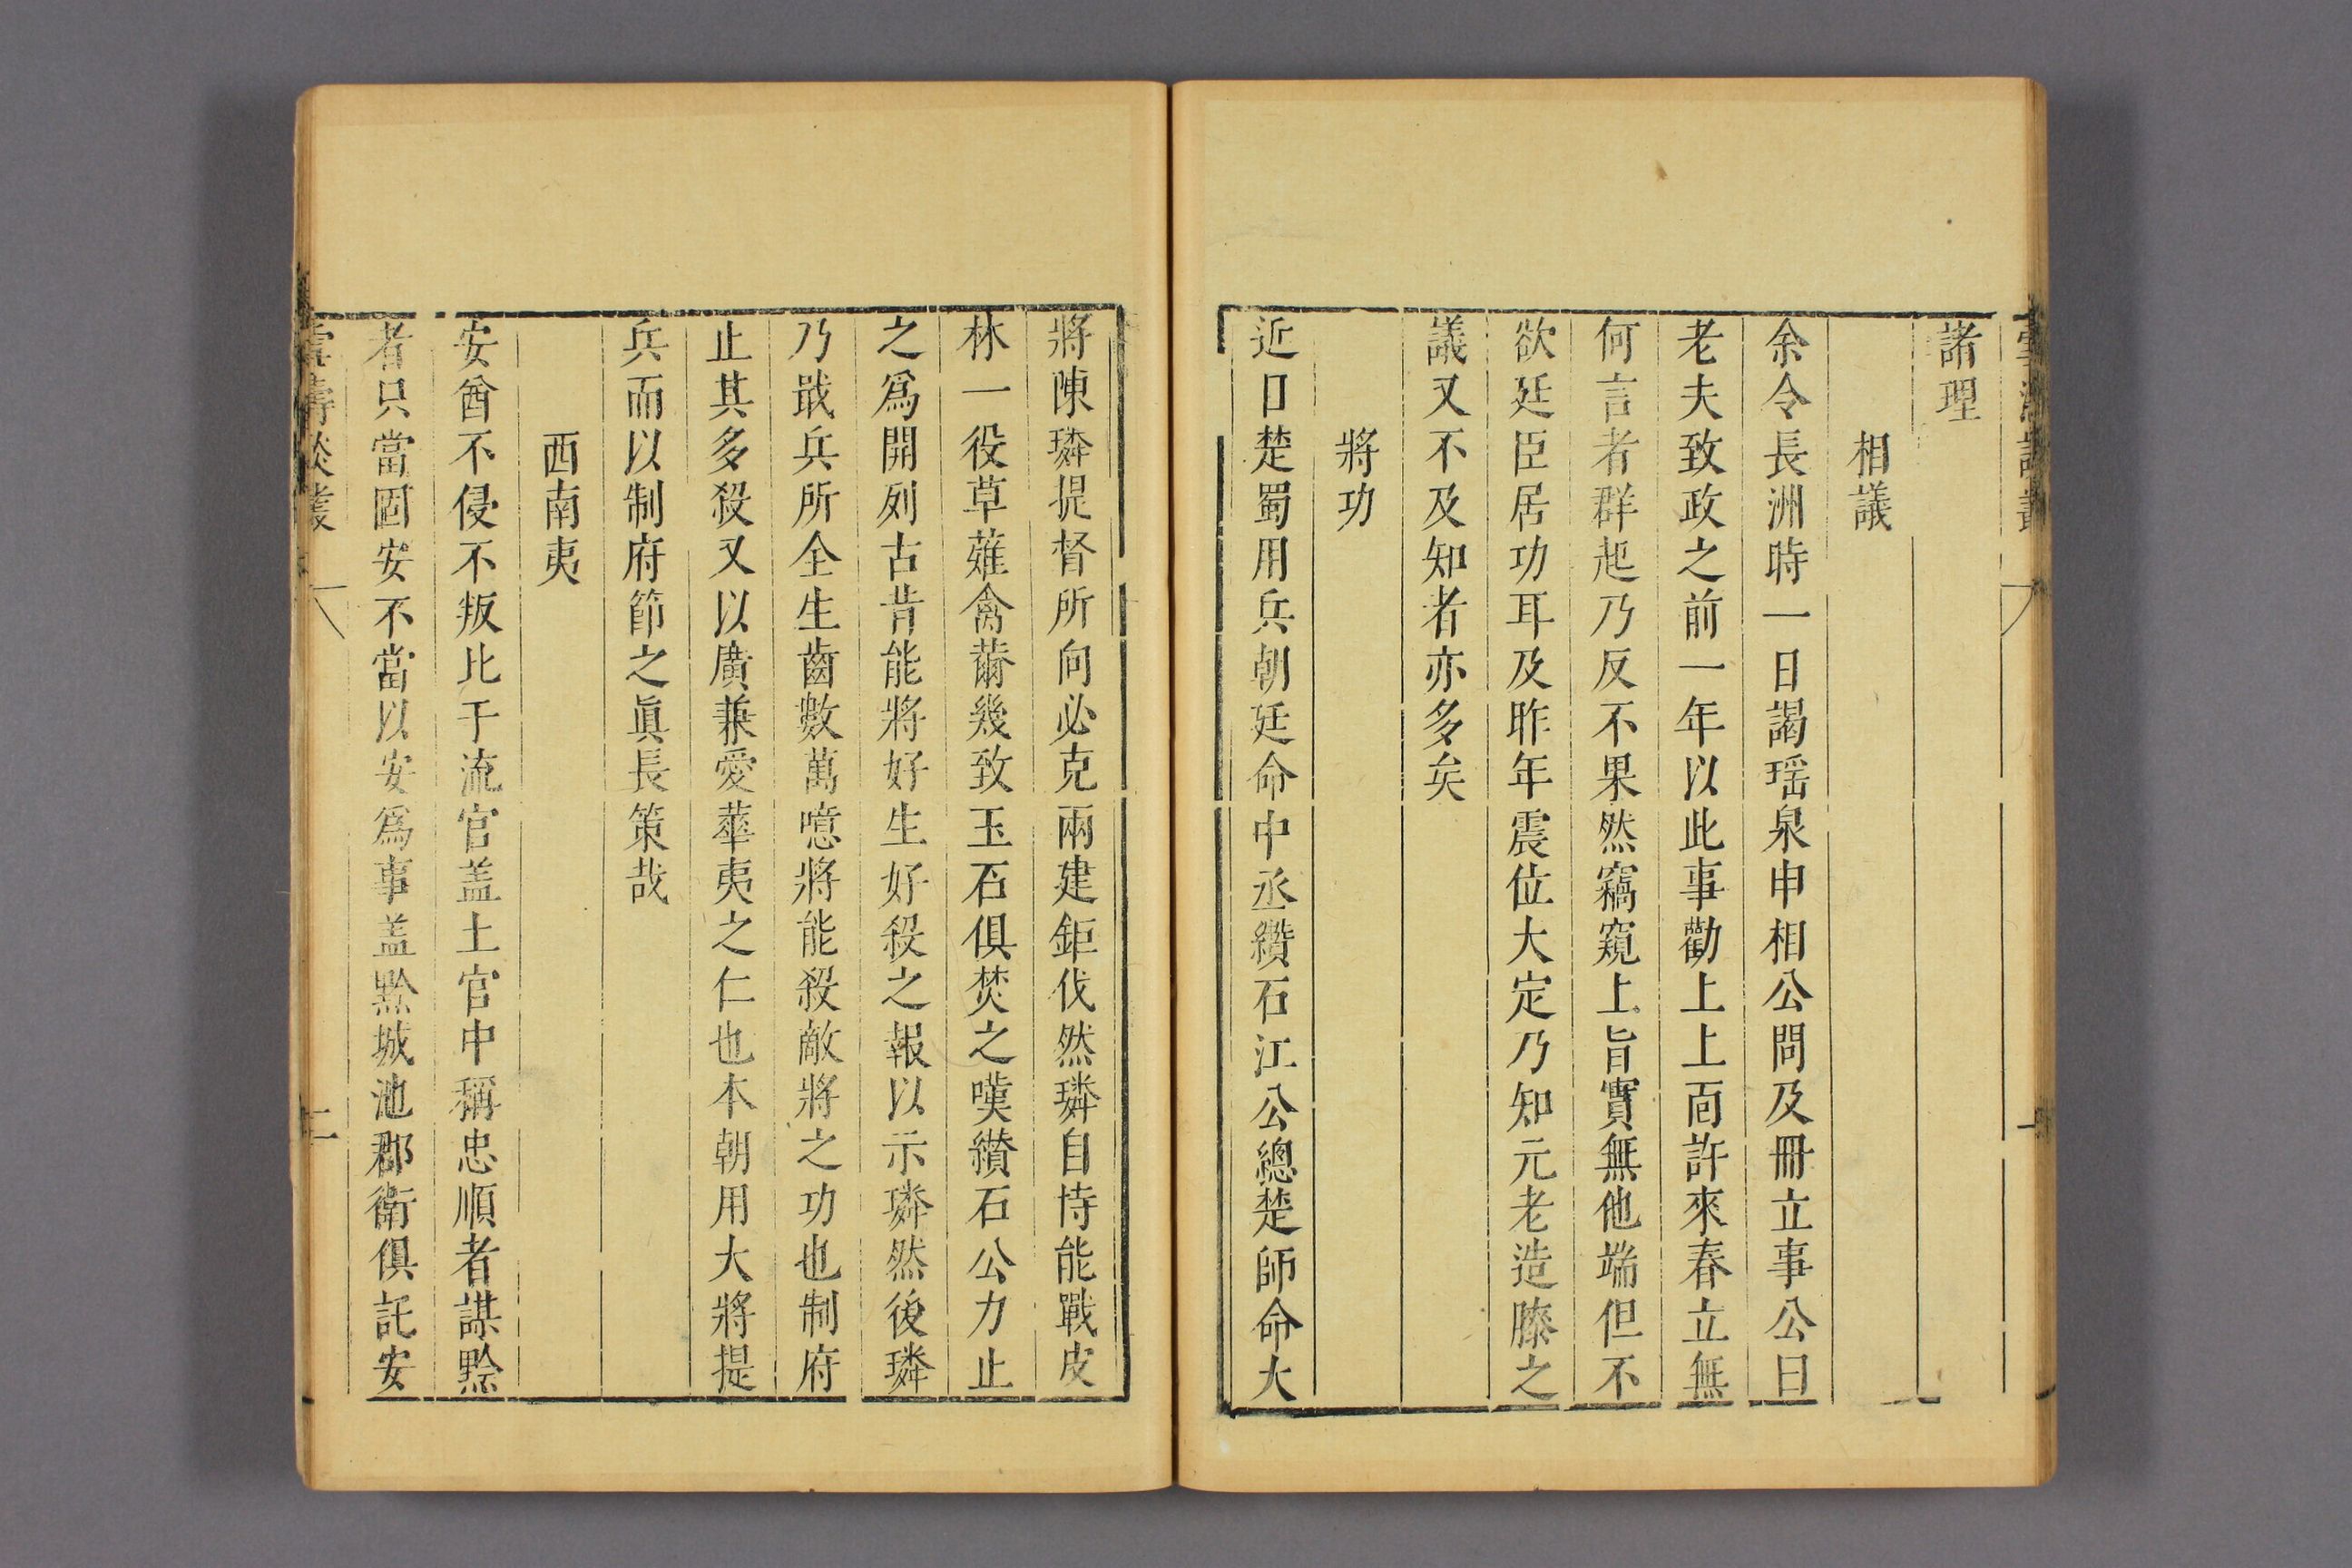 諸理
相議
余令長洲時一日謁瑶泉申相公問及冊立事公曰
老夫致政之前一年以此事勸上上面許來春立無
何言者群起乃反不果然竊窺上旨實無他端但不
欲廷臣居功耳及昨年震位大定乃知元老造膝之
議又不及知者亦多矣
將功
近日楚蜀用兵朝廷命中丞纘石江公總楚師命大
將陳璘提督所向必克兩建鉅伐然璘自恃能戰皮
林一役草薙禽薾幾致玉石俱焚之嘆纘石公力止
之爲開列古昔能將好生好殺之報以示璘然後璘
乃戢兵所全生齒數萬噫將能殺敵將之功也制府
止其多殺又以廣兼愛華夷之仁也本朝用大將提
兵而以制府節之眞長策哉
西南夷
安酋不侵不叛比于流官盖土官中稱忠順者謀黔
者只當固安不當以安爲事盖黔城池郡衛俱託安
談叢
二